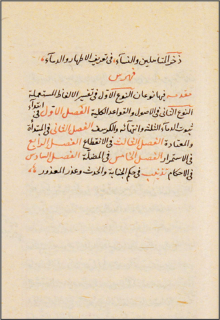 ذخر المتأهلين والنساء في تعريف الاطهار والدماء
فهرس
مقدمه فيها نوعان النوع الاول في تفسير الالفاظ المستعملة
النوع الثاني في الاصول والقواعد الكلية الفصل الاول في ابتداء
ثبوت الدماء الثلثة وانتهائه والكرسف الفصل الثاني في المبتدأة
والمعتادة الفصل الثالث في الانقطاع الفصل الرابع
في الاستمرار الفصل الخامس في المضلة الفصل السادس
في الاحكام تذنيب في حكم الجنابة والحدث وعذر المعذور